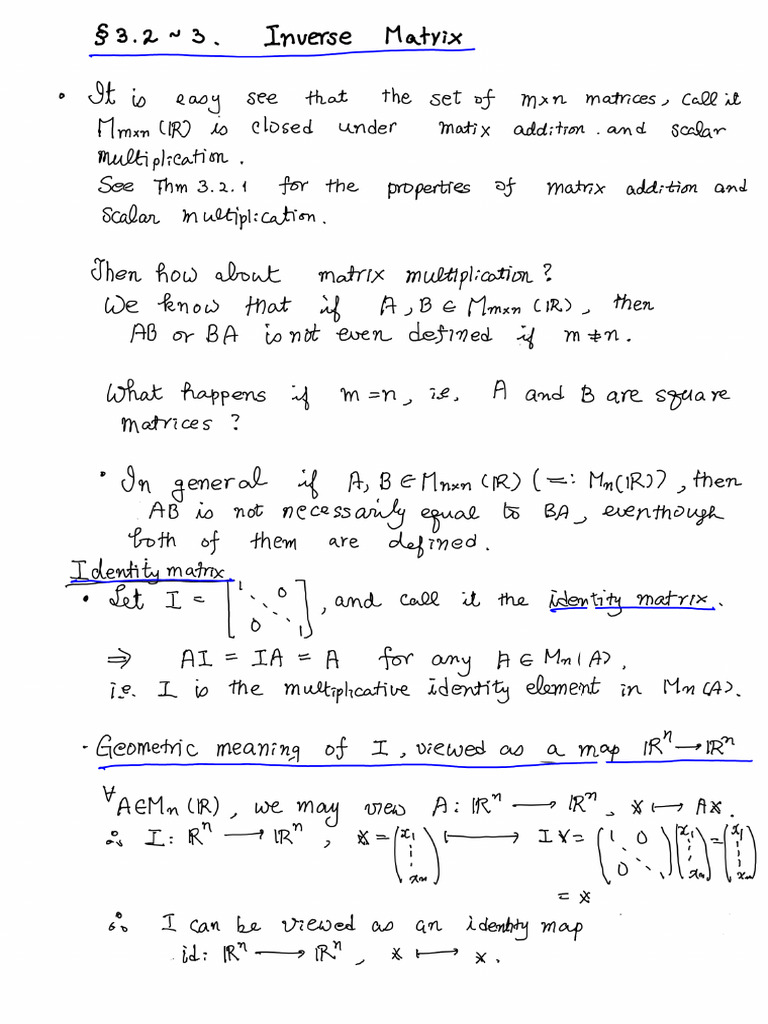 §3.2~3. Inverse Matrix
• It is easy see that the set of m×n matrices, call it
Mm×n (ℝ) is closed under matix addition. and scalar
multiplication.
See Thm 3.2.1 for the properties of matrix addition and
scalar multiplication.
Then how about matrix multiplication?
We know that if A, B ∈ Mm×n (ℝ), then
AB or BA is not even defined if m≠n.
What happens if m=n, i.e. A and B are square
matrices?
• In general if A, B ∈ Mn×n (ℝ) (=: Mn(ℝ)), then
AB is not necessarily equal to BA, eventhough
both of them are defined.
Identity matrix
• Let I = [1 ⋱ 0 0 1], and call it the identity matrix.
⇒ AI = IA = A for any A ∈ Mn(A),
i.e. I is the multiplicative identity element in Mn(A).
· Geometric meaning of I, viewed as a map ℝⁿ → ℝⁿ
∀A∈Mn(ℝ), we may view A: ℝⁿ ⟶ ℝⁿ, 𝕩 ↦ A𝕩.
∴ I: ℝⁿ ⟶ ℝⁿ, 𝕩 = (x₁ ⋮ xₙ) ⟼ I𝕩 = (1 0 0 ⋱)(x₁ ⋮ xₙ) = (x₁ ⋮ xₙ)
= 𝕩
∴ I can be viewed as an identity map
id: ℝⁿ ⟶ ℝⁿ, 𝕩 ⟼ 𝕩.